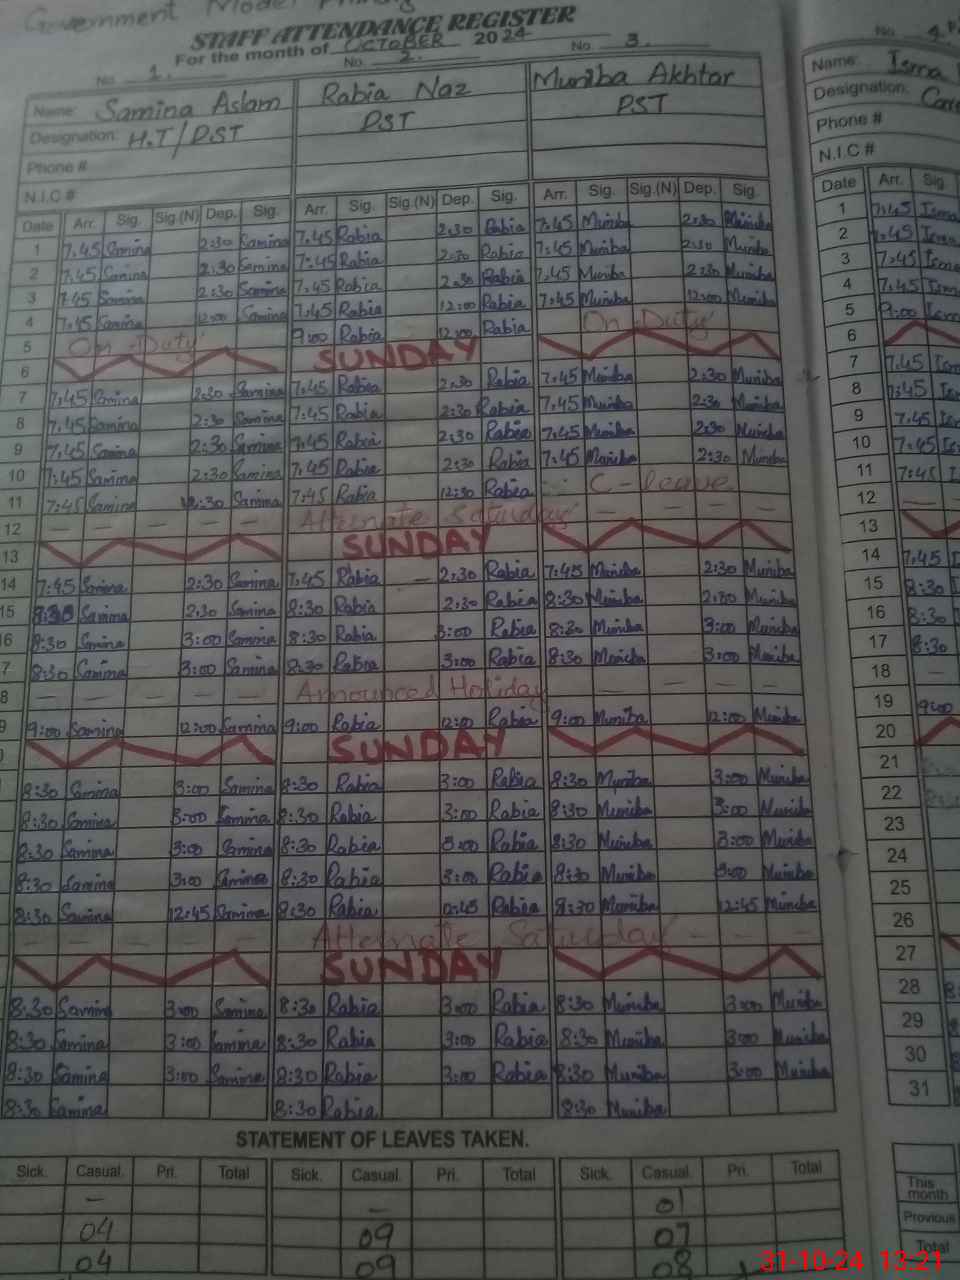 Government Model Primary
STAFF ATTENDANCE REGISTER
For the month of OCTOBER 2024
No. 1. No. 2. No. 3. No. 4.
Name: Samina Aslam Rabia Naz Muniba Akhtar Name: Isma
Designation: H.T/PST PST PST Designation:
Phone # Phone #
N.I.C # N.I.C #
Date Arr. Sig. Sig.(N) Dep. Sig. Arr. Sig. Sig.(N) Dep. Sig. Arr. Sig. Sig.(N) Dep. Sig. Date Arr. Sig.
1 7.45 Samina 2:30 Samina 7.45 Rabia 2:30 Rabia 7.45 Muniba 2:30 Muniba 1 7.45 Isma
2 7.45 Samina 2:30 Samina 7:45 Rabia 2:30 Rabia 7:45 Muniba 2:30 Muniba 2 7.45 Isma
3 7.45 Samina 2:30 Samina 7.45 Rabia 2:30 Rabia 7.45 Muniba 2:30 Muniba 3 7.45 Isma
4 7.45 Samina 12:00 Samina 7.45 Rabia 12:00 Rabia 7.45 Muniba 12:00 Muniba 4 7.45 Isma
5 On-Duty 9:00 Rabia 12:00 Rabia On-Duty 5 9:00 Isma
6 SUNDAY 6
7 7.45 Samina 2:30 Samina 7:45 Rabia 2:30 Rabia 7:45 Muniba 2:30 Muniba 7 7.45 Ism
8 7.45 Samina 2:30 Samina 7:45 Rabia 2:30 Rabia 7.45 Muniba 2:30 Muniba 8 7.45 Ism
9 7.45 Samina 2:30 Samina 7.45 Rabia 2:30 Rabia 7.45 Muniba 2:30 Muniba 9 7.45 Is
10 7:45 Samina 2:30 Samina 7.45 Rabia 2:30 Rabia 7:45 Muniba 2:30 Muniba 10 7:45 Is
11 7:45 Samina 12:30 Samina 7:45 Rabia 12:30 Rabia C-leave 11 7:45 I
12 - - - - - Alternate Saturday - - - - 12 -
13 SUNDAY 13
14 7:45 Samina 2:30 Samina 7:45 Rabia - 2:30 Rabia 7:45 Muniba 2:30 Muniba 14 7:45 I
15 8:30 Samina 2:30 Samina 8:30 Rabia 2:30 Rabia 8:30 Muniba 2:30 Muniba 15 8:30 I
16 8:30 Samina 3:00 Samina 8:30 Rabia 3:00 Rabia 8:30 Muniba 3:00 Muniba 16 8:30
7 8:30 Samina 3:00 Samina 8:30 Rabia 3:00 Rabia 8:30 Muniba 3:00 Muniba 17 8:30
8 - - - - - Announced Holiday - - - - 18 -
9 9:00 Samina 12:00 Samina 9:00 Rabia 12:00 Rabia 9:00 Muniba 12:00 Muniba 19 9:00
SUNDAY 20
8:30 Samina 3:00 Samina 8:30 Rabia 3:00 Rabia 8:30 Muniba 3:00 Muniba 21
8:30 Samina 3:00 Samina 8:30 Rabia 3:00 Rabia 8:30 Muniba 3:00 Muniba 22
8:30 Samina 3:00 Samina 8:30 Rabia 3:00 Rabia 8:30 Muniba 3:00 Muniba 23
8:30 Samina 3:00 Samina 8:30 Rabia 3:00 Rabia 8:30 Muniba 3:00 Muniba 24
8:30 Samina 12:45 Samina 8:30 Rabia 12:45 Rabia 8:30 Muniba 12:45 Muniba 25
- - - - - Alternate Saturday - - - 26
SUNDAY 27
8:30 Samina 3:00 Samina 8:30 Rabia 3:00 Rabia 8:30 Muniba 3:00 Muniba 28
8:30 Samina 3:00 Samina 8:30 Rabia 3:00 Rabia 8:30 Muniba 3:00 Muniba 29
8:30 Samina 3:00 Samina 8:30 Rabia 3:00 Rabia 8:30 Muniba 3:00 Muniba 30
8:30 Samina 8:30 Rabia 8:30 Muniba 31
STATEMENT OF LEAVES TAKEN.
Sick. Casual. Pri. Total Sick. Casual. Pri. Total Sick. Casual. Pri. Total
- - 01 This month
04 09 07 Previous
04 09 08 Total
31-10-24 13:21